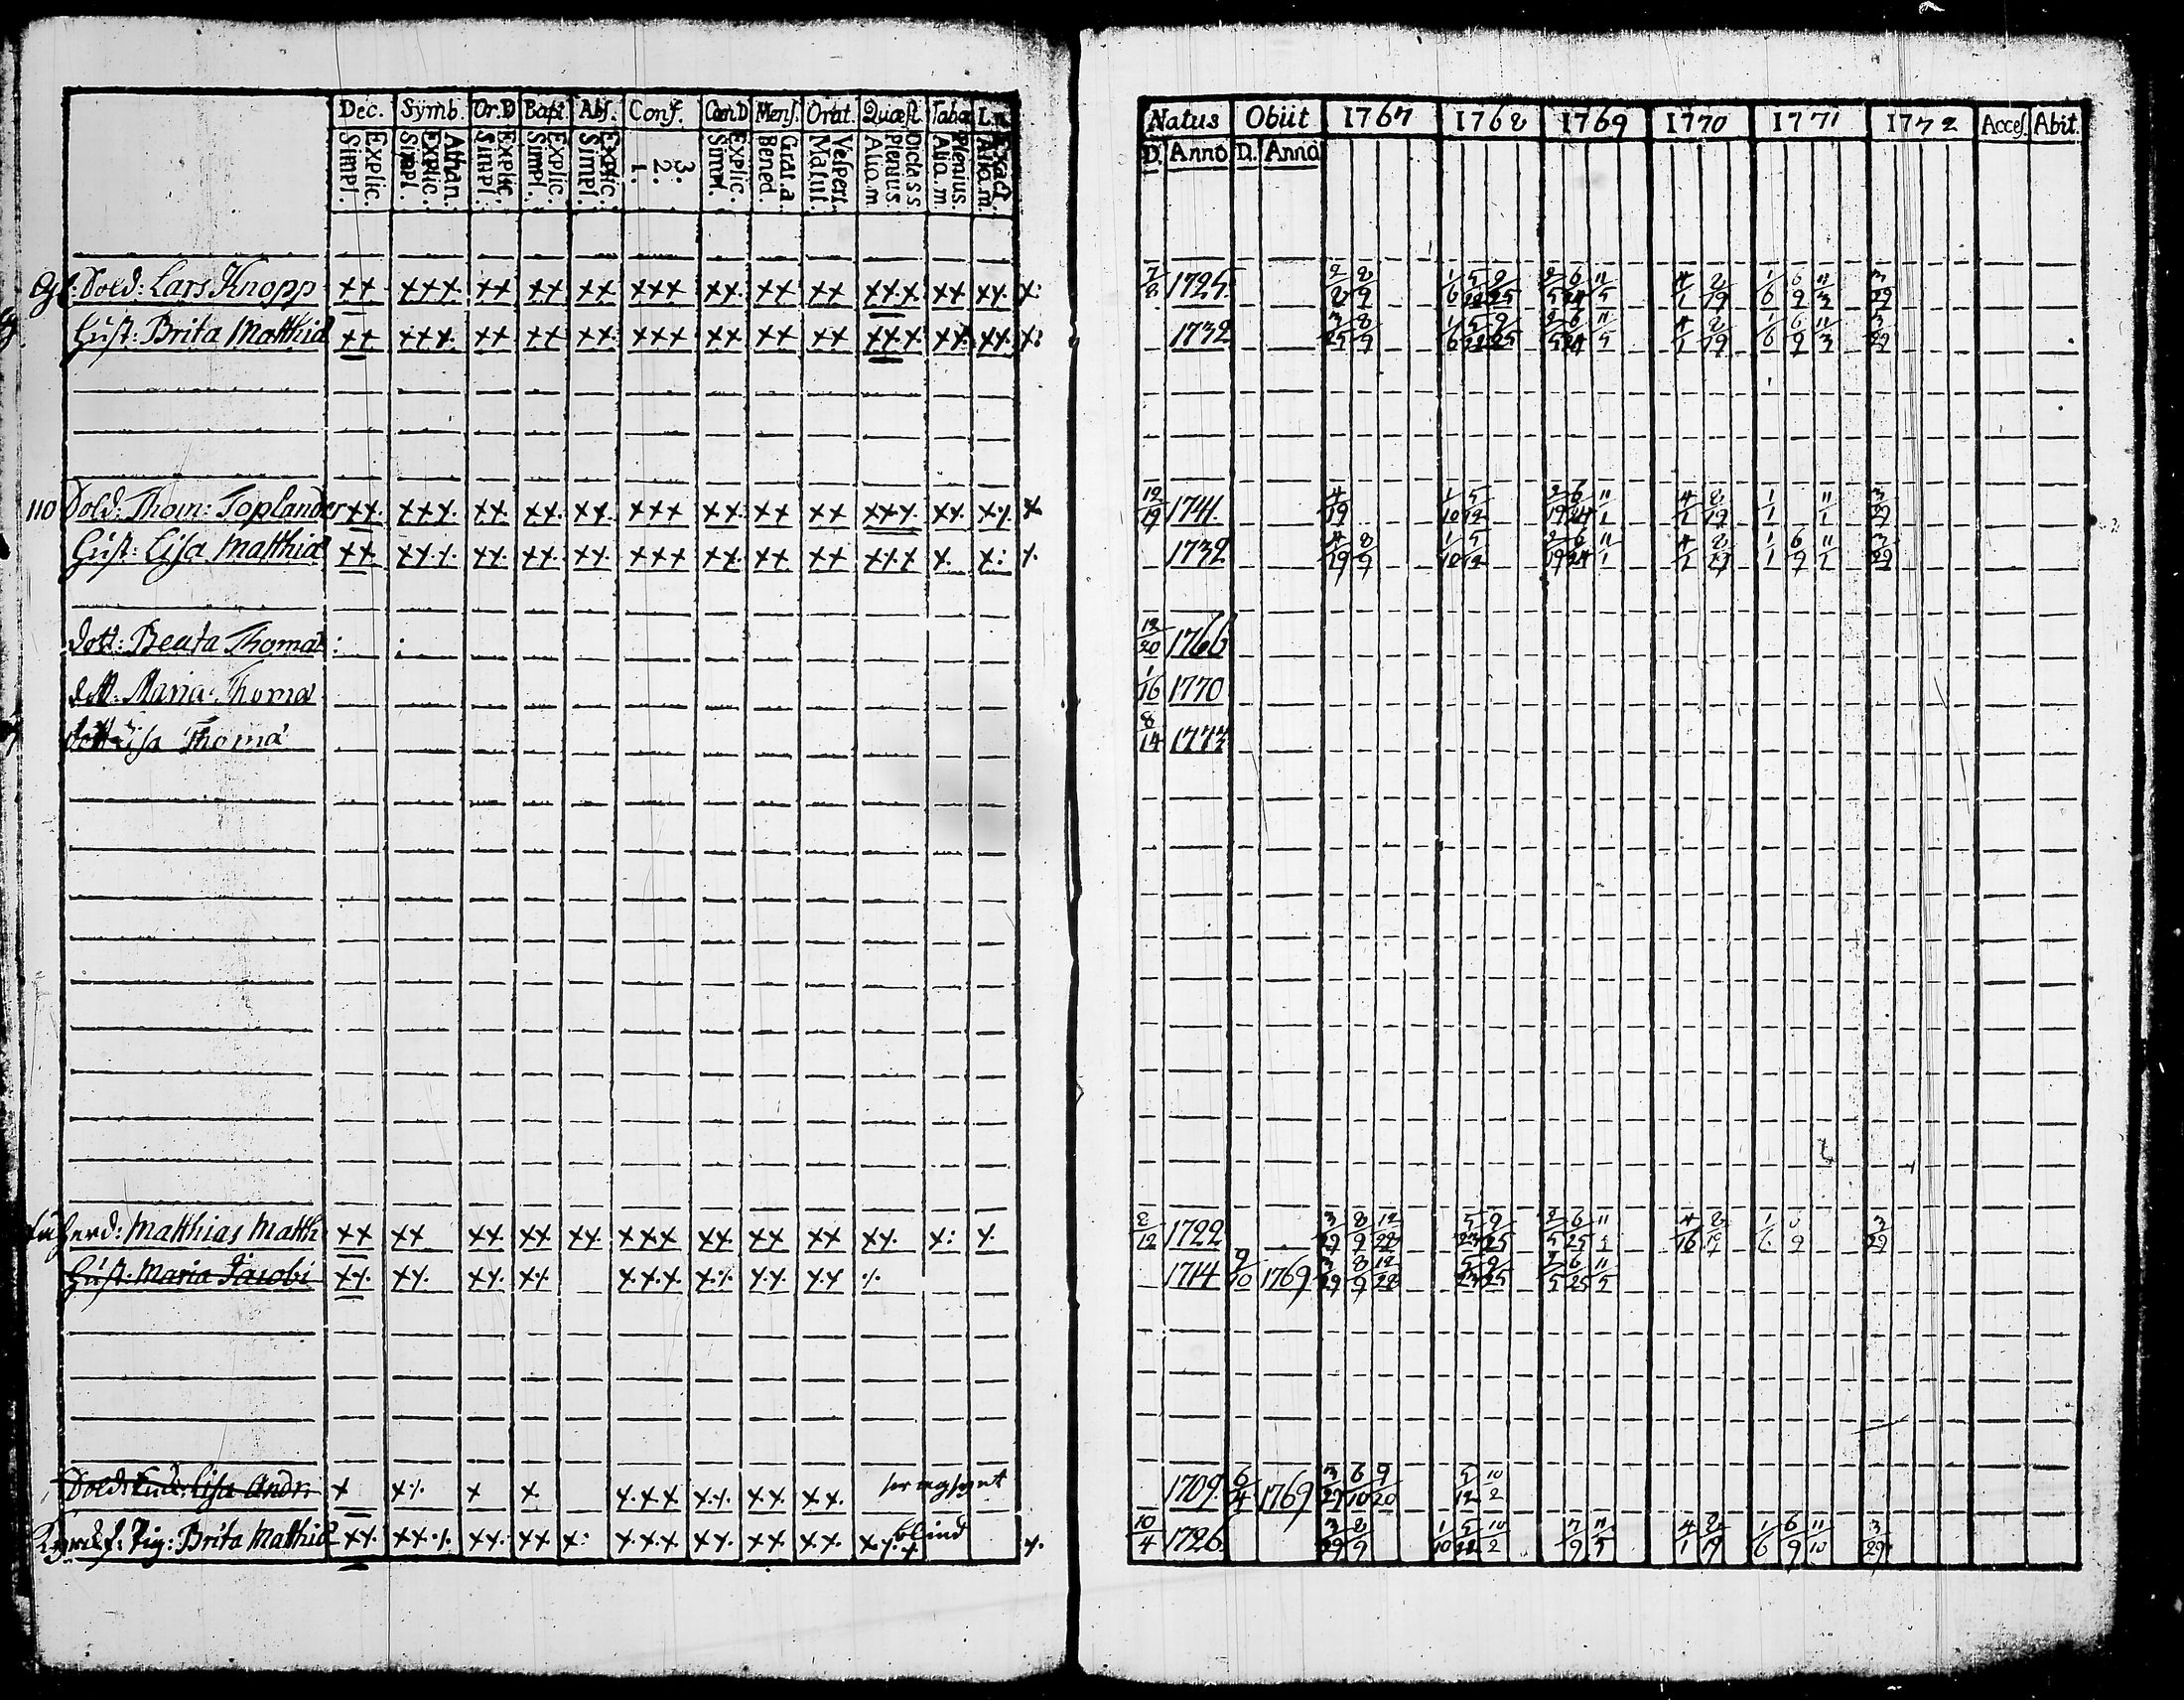 Dec. Symb. Or.D Bapt. Abs. Conf. Cœn.D Mens. Orat. Quæst. Taba L.n.
Explic. Simpl. Athan. Explic. Simpl. Explic. Simpl. Explic. Simpl. Explic. Simpl. 3. 2. 1. Explic. Simpl. Grat.a. Bened. Vesperi. Matut. Dicta s s Plenius Aliq.m Plenius. Aliq.m Exact. Aliq.m.
Natus Obiit 1767 1768 1769 1770 1771 1772 Acces. Abit.
D. Anno D. Anno
Sold: Lars Knopp xx xxx xx xx xx xxx xx xx xx xxx xx xx. x: 7/8 1725. 2/8 8/9 1/6 5/22 9/25 2/5 6/24 11/5 4/1 8/19 1/6 6/9 11/3 3/29
Hust: Brita Matthiæ xx xxx xx xx xx xxx xx xx xx xxx xx xx. x: 1732 3/25 8/9 1/6 5/22 9/25 2/5 6/24 11/5 4/1 8/19 1/6 6/9 11/3 3/29
110 Sold: Thom: Toplander xx xxx xx xx xx xxx xx xx xx xxx xx xx x 12/19 1741. 4/19 1/10 5/12 2/19 6/24 11/1 4/1 8/19 1/1 11/1 3/29
Hust: Lisa Matthiæ xx xxx xx xx xx xxx xx xx xx xxx x. x: x. 1732 4/19 8/9 1/10 5/12 2/19 6/24 11/1 4/1 8/19 1/1 6/9 11/1 3/29
dott: Beata Thomæ 12/20 1766
dott: Maria Thomæ 1/16 1770
dott Lisa Thomæ 8/14 1773
Matthias Matth xx xx xx xx xx xxx xx xx xx xx. x: x. 2/12 1722 3/29 8/9 12/28 5/23 9/25 2/5 6/25 11/5 4/16 8/19 1/6 6/9 3/29
Hust: Maria Jacobi xx xx xx xx xxx xx xx xx 1714 9/10 1769 3/29 8/9 12/28 5/23 9/25 2/5 6/25 11/5
Sold: Enck: Lisa Andr: x xx x x. xxx xx xx xx. 1709. 6/4 1769 3/29 6/10 9/20 5/12 10/2
blind
Pig: Brita Matthiæ xx xxx xx xx x: xxx xx xx xx. xxx x. 10/4 1726. 3/29 8/9 1/10 5/22 10/2 7/9 11/5 4/1 8/19 1/6 6/9 11/10 3/29